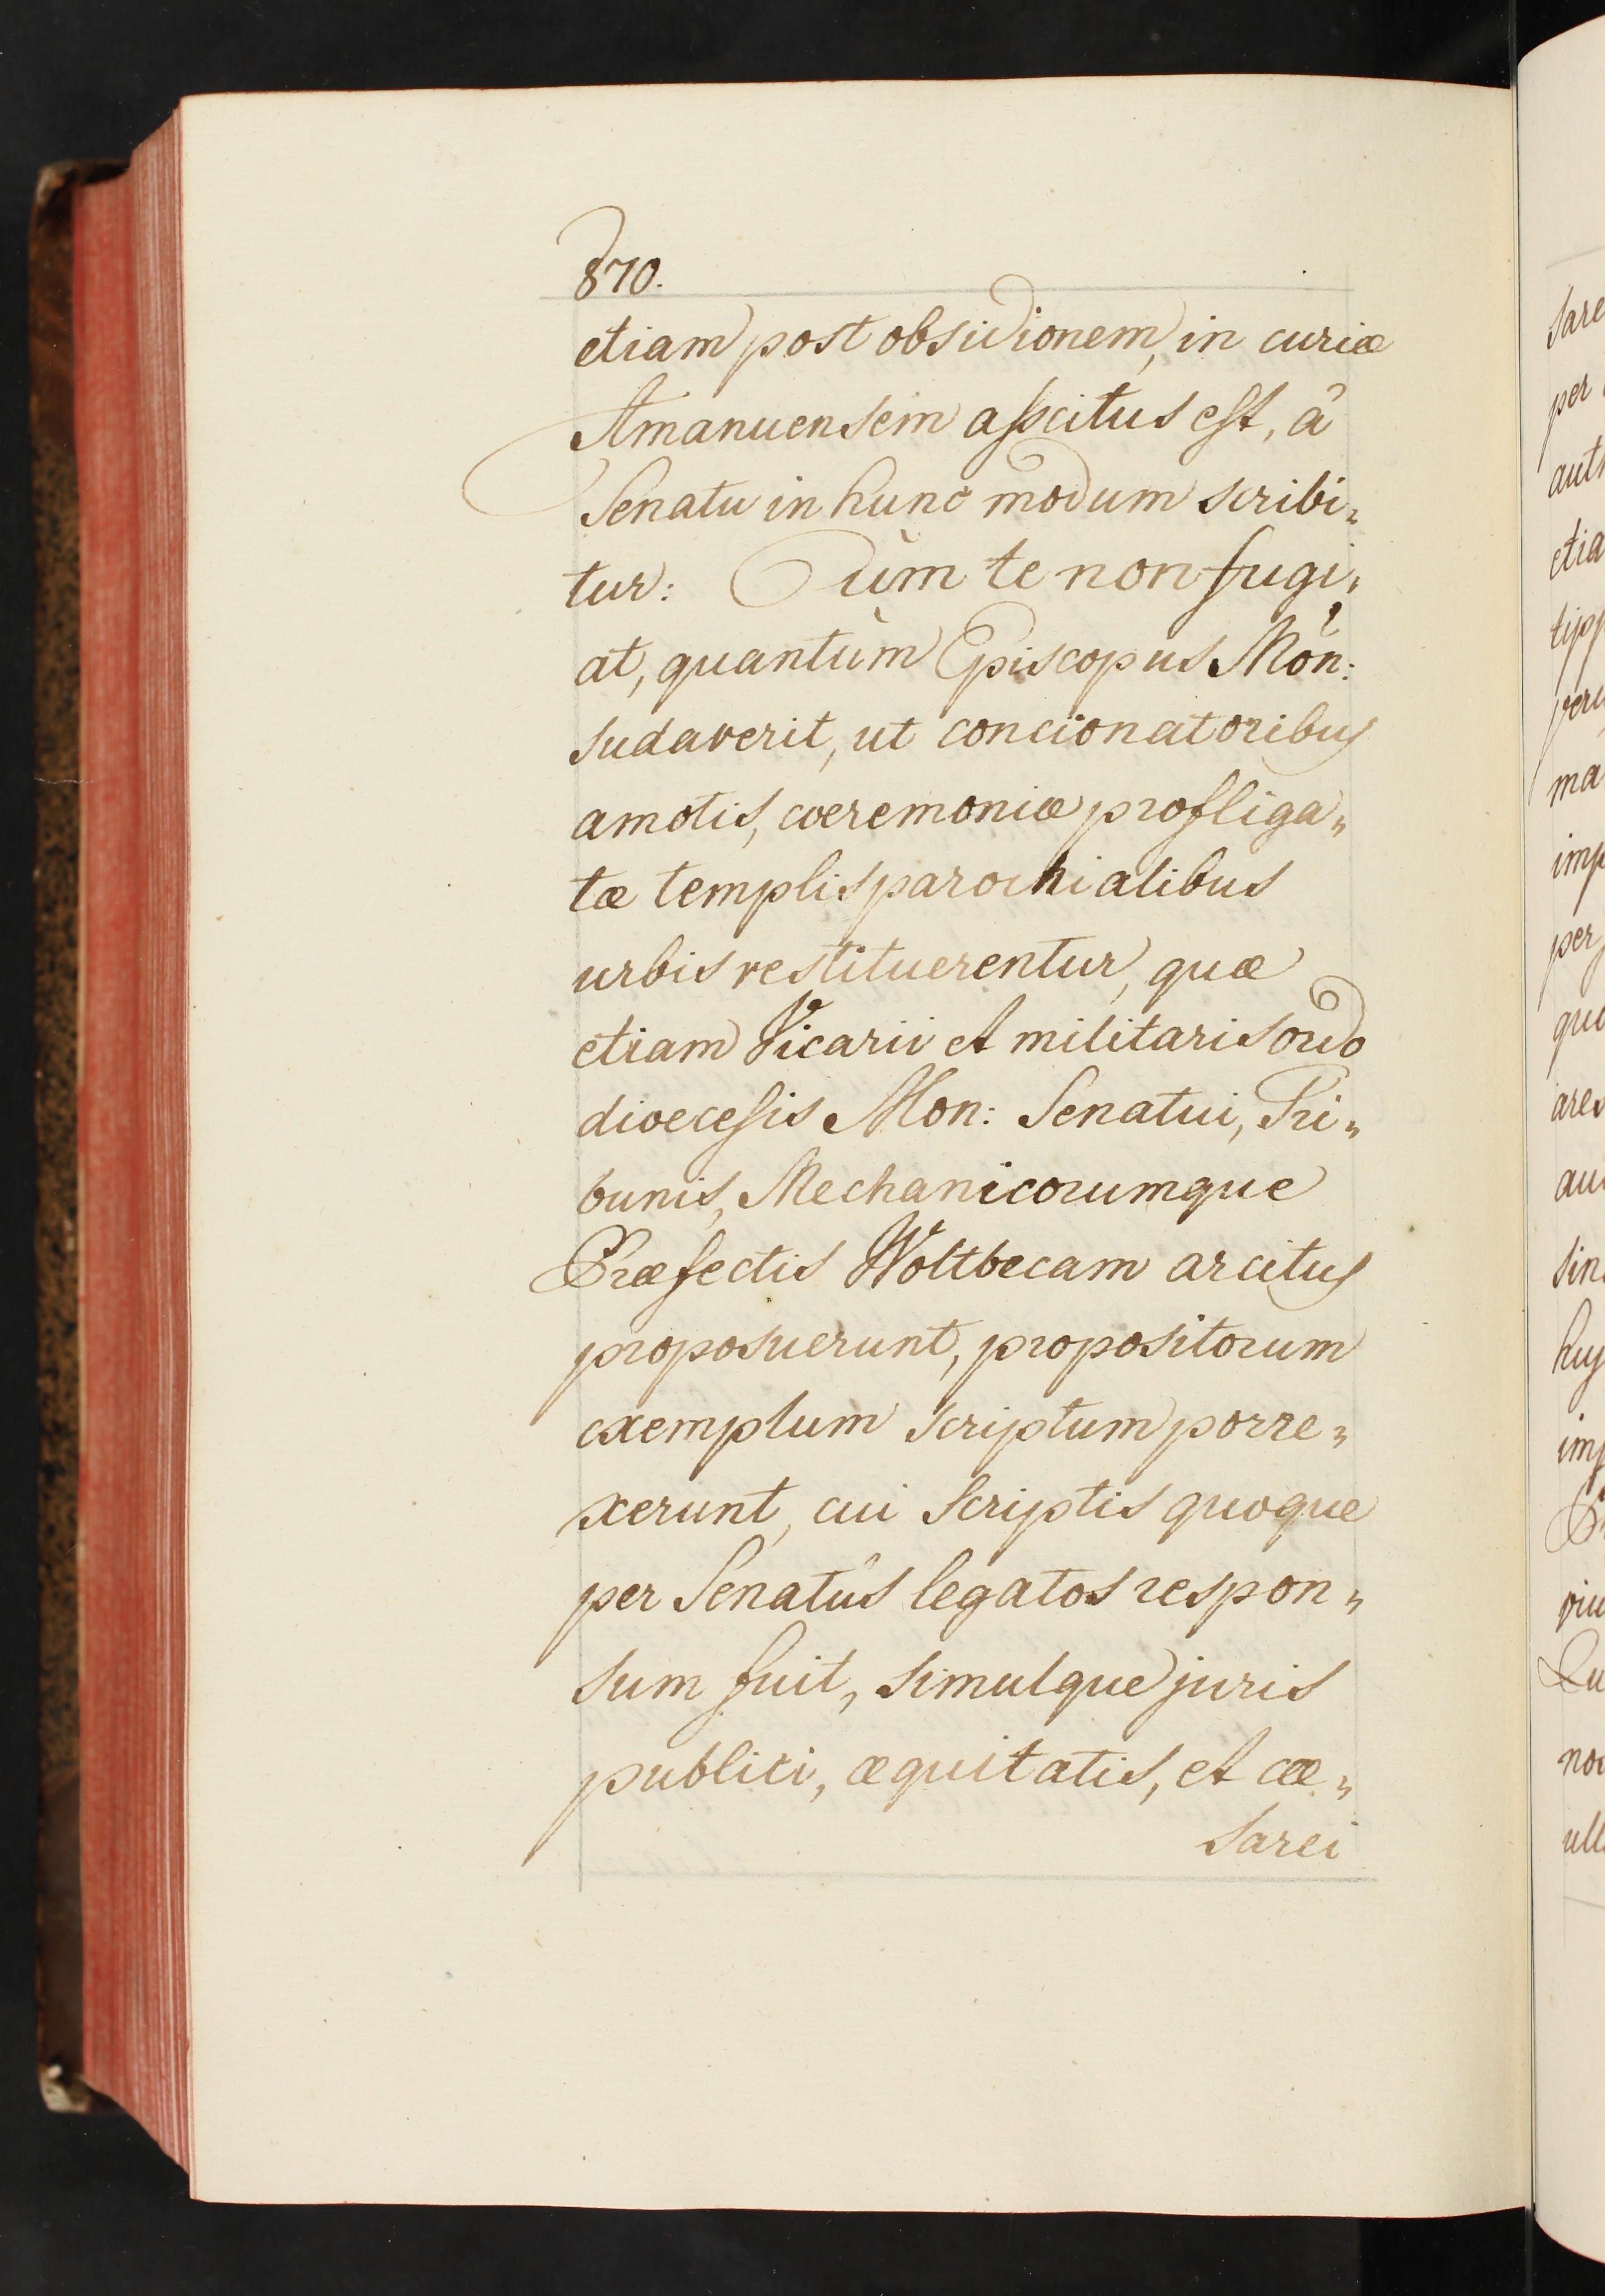 870.
etiam post obsidionem, in curiæ
Amanuensem asscitus est, â
Senatu in hunc modum scribi„
tur: Cùm te non fugi„
at, quantùm Episcopus Mon:
sudaverit, ut concionatoribus
amotis, cœremoniæ profliga„
tæ templis parochialibus
urbis restituerentur, quæ
etiam Vicarii et militaris ordo
diœcesis Mon: Senatui, Tri„
bunis, Mechanicorumque
Præfectis Woltbecam arcitus
proposuerunt, propositorum
exemplum scriptum porre„
xerunt, cui scriptis quoque
per Senatûs legatos respon„
sum fuit, simulque juris
publici, æquitatis, et cæ„
sarei